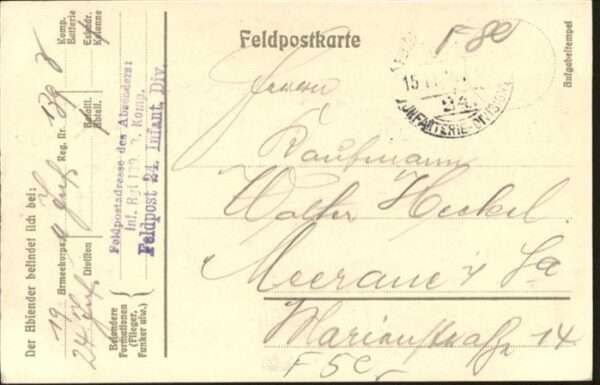 Feldpostkarte
F 80
Aufgabestempel
15
24.
INFANTERIE-DIVISION
Herrn
Kaufmann
Walter Heckel
Meerane i/ Sa
Marienstraße 14
F 5e
Der Absender befindet sich bei:
19 Armeekorps
24 Inf. Division
Inf. Reg. Nr. 139
Bataill.
Abteil.
8 Komp.
Batterie
Eskadr.
Kolonne
Besondere
Formationen
(Flieger,
Funker usw.)
Feldpostadresse des Absenders:
Inf. Rgt 139 . Komp.
Feldpost 24. Infant. Div.